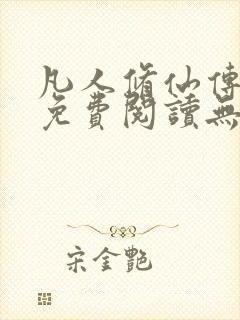 凡人脩仙傳
免費閱讀無
宋金艷